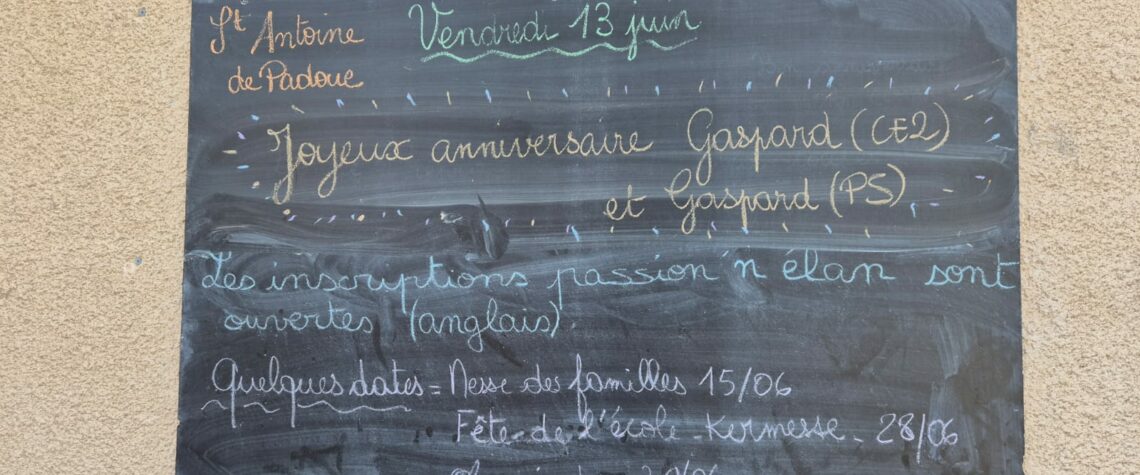 St Antoine
de Padoue
Vendredi 13 juin
Joyeux anniversaire Gaspard (CE2)
et Gaspard (PS)
Les inscriptions passion'n élan sont
ouvertes (anglais)
Quelques dates = Messe des familles 15/06
Fête de l'école - Kermesse - 28/06